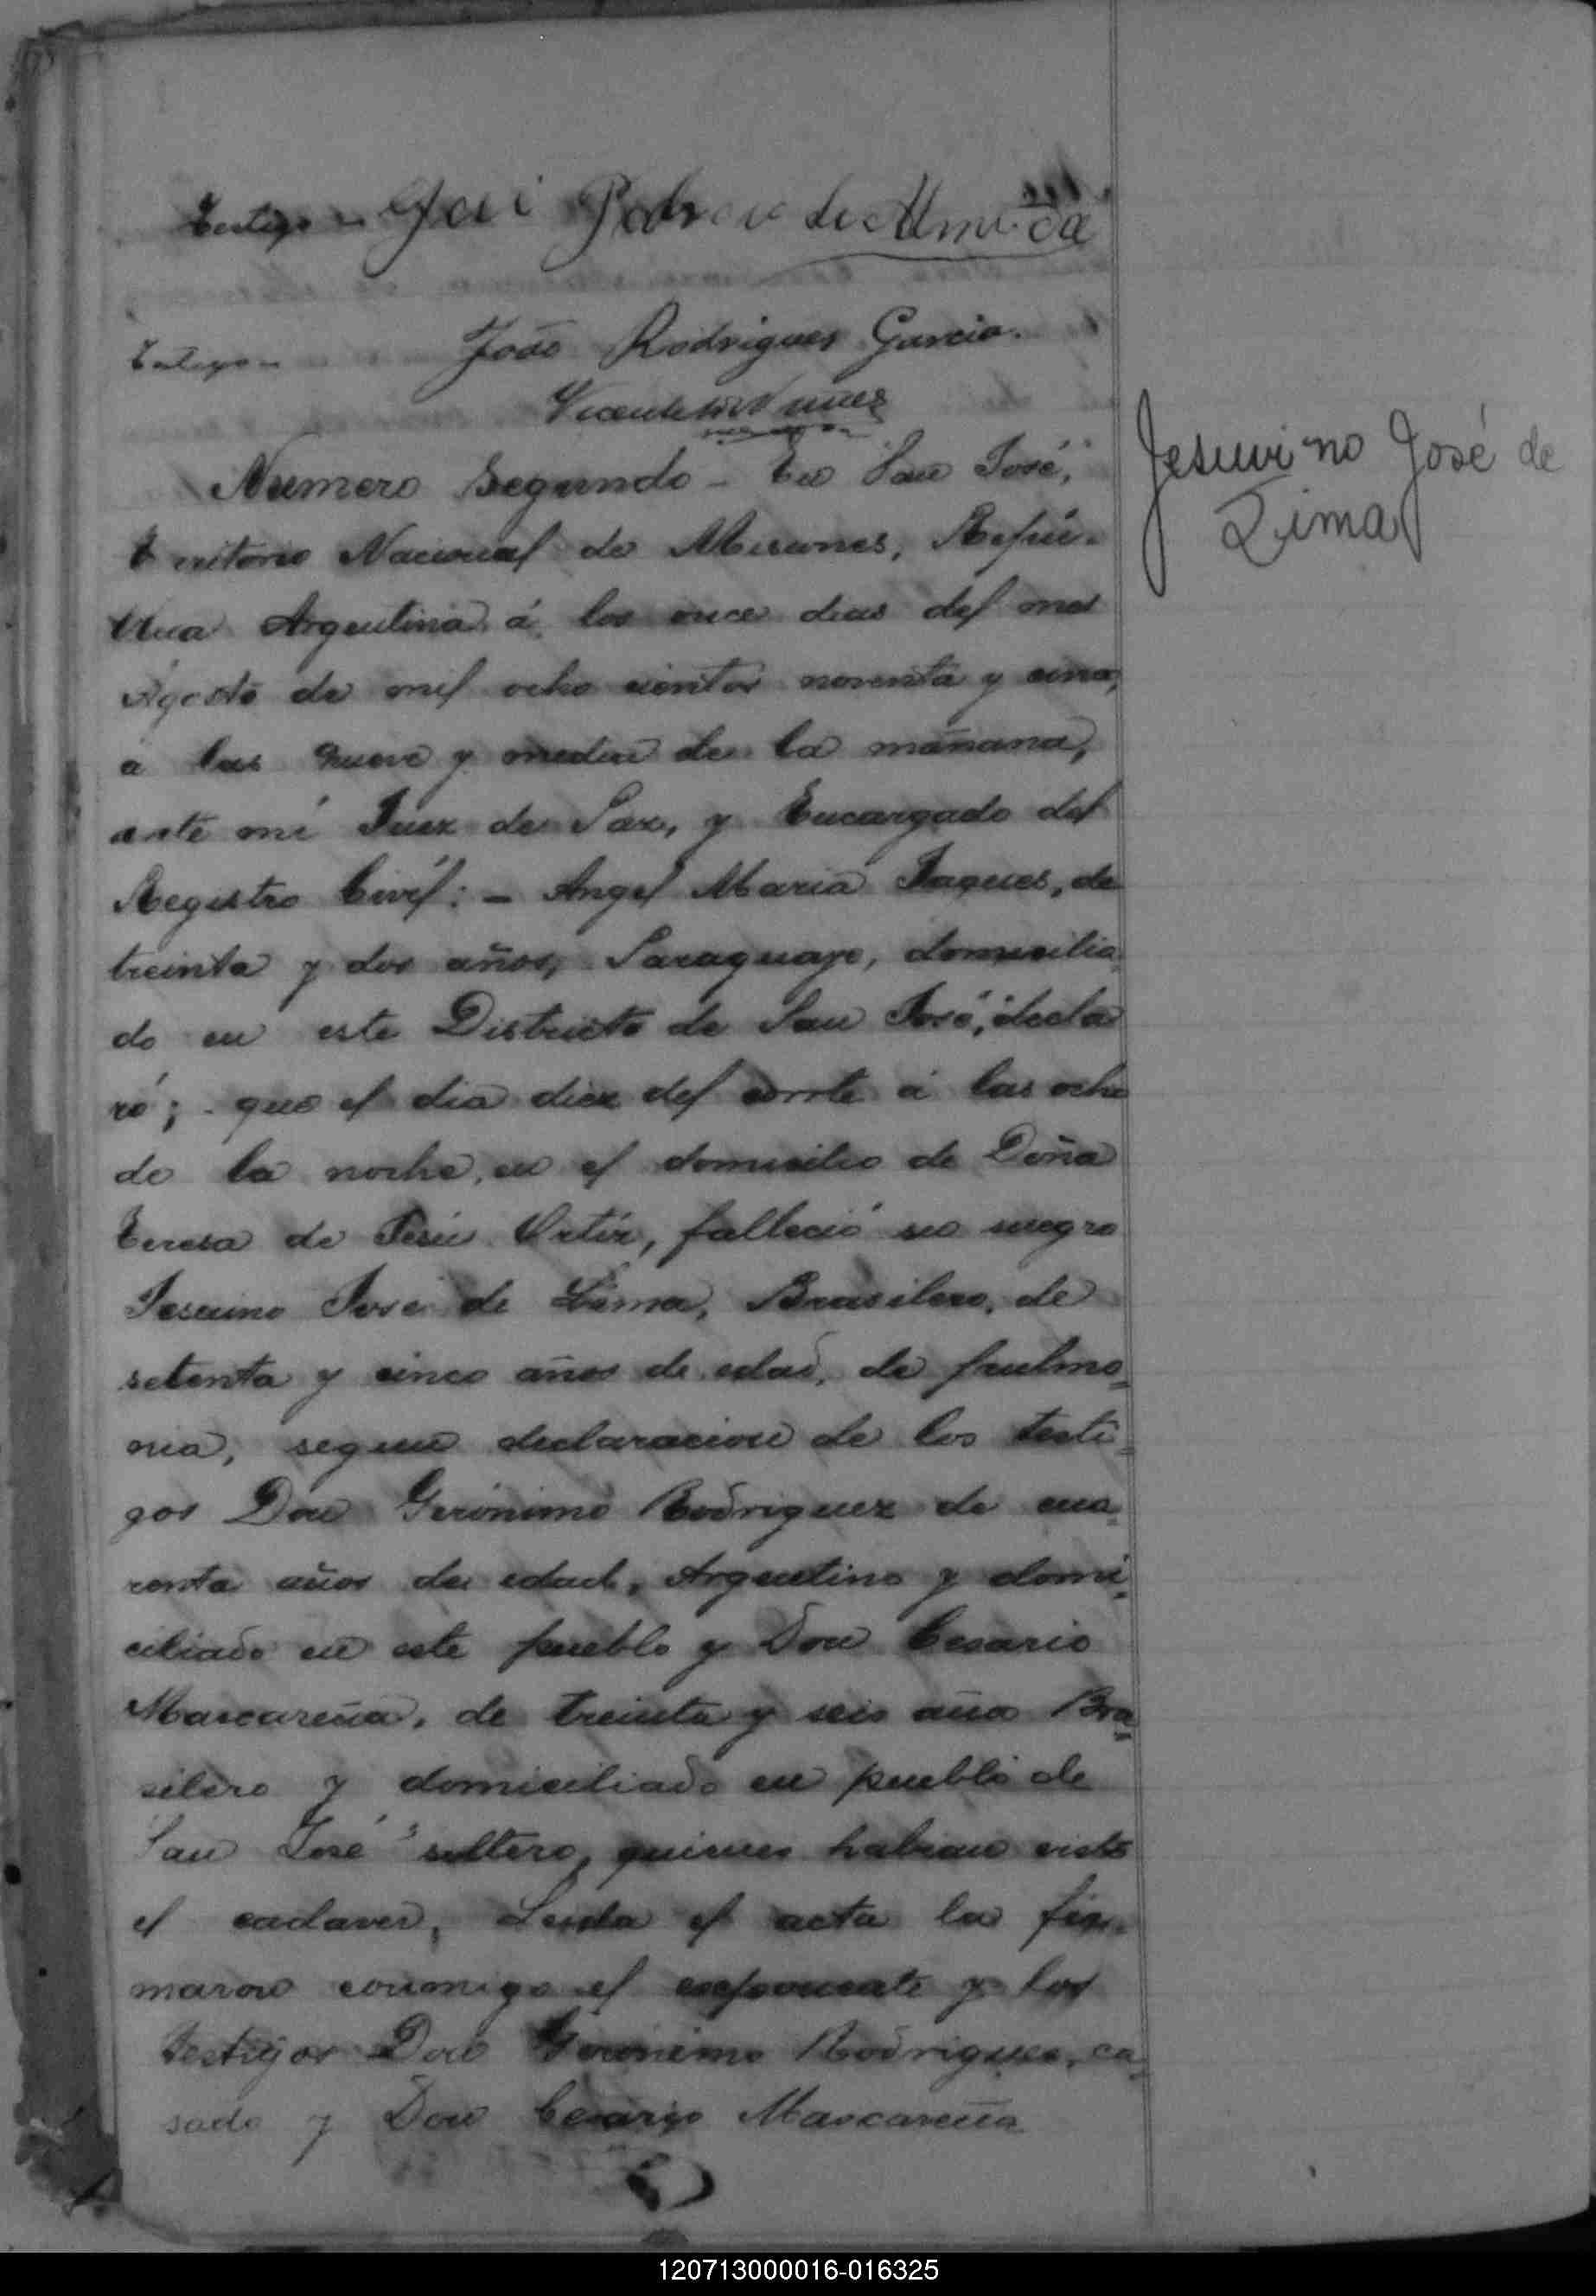 Testigo - José Pedro de Almeida
Testigo - João Rodrigues Garcia.
Vicente Nuñez
Numero Segundo - En San José,
Territorio Nacional de Misiones, Repú-
blica Argentina á los once dias del mes
Agosto de mil ocho cientos noventa y cinco,
a las nueve y media de la mañana,
ante mí Juez de Paz, y Encargado del
Registro Civil: - Angel Maria Jaques, de
treinta y dos años, Paraguayo, domicilia
do en este Districto de San José, decla
ró; - que el dia diez del corrte á las ocho
de la noche, en el domicilio de Doña
Teresa de Jesús Ortiz, falleció su suegro
Jesuino José de Lima, Brasilero, de
setenta y cinco años de edad, de pulmo-
nia, segun declaracion de los testi-
gos Don Gerónimo Rodriguez de cua-
renta años de edad, Argentino y domi-
ciliado en este pueblo y Don Cesario
Mascareña, de treinta y seis años Bra-
silero y domiciliado en pueblo de
San José soltero, quienes habian visto
el cadaver, Leida el acta la fir-
maron conmigo el exponente y los
testigos Don Gerónimo Rodrigues, ca-
sado y Don Cesario Mascareña
Jesuvino José de
Lima
120713000016-016325